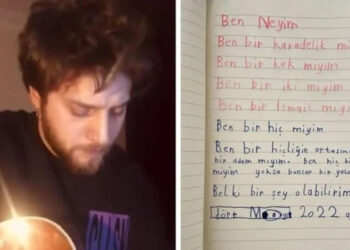 Ben Neyim
Ben bir karadelik mi
Ben bir kek miyim
Ben bir iki miyim
Ben bir İsmail miy
Ben bir hiç miyim
Ben bir hiçliğin ortasın
bir adam mıyım. ben hiç bi
miyim yoksa bunlar bir yala
Belki bir şey olabilirim
dört 2022